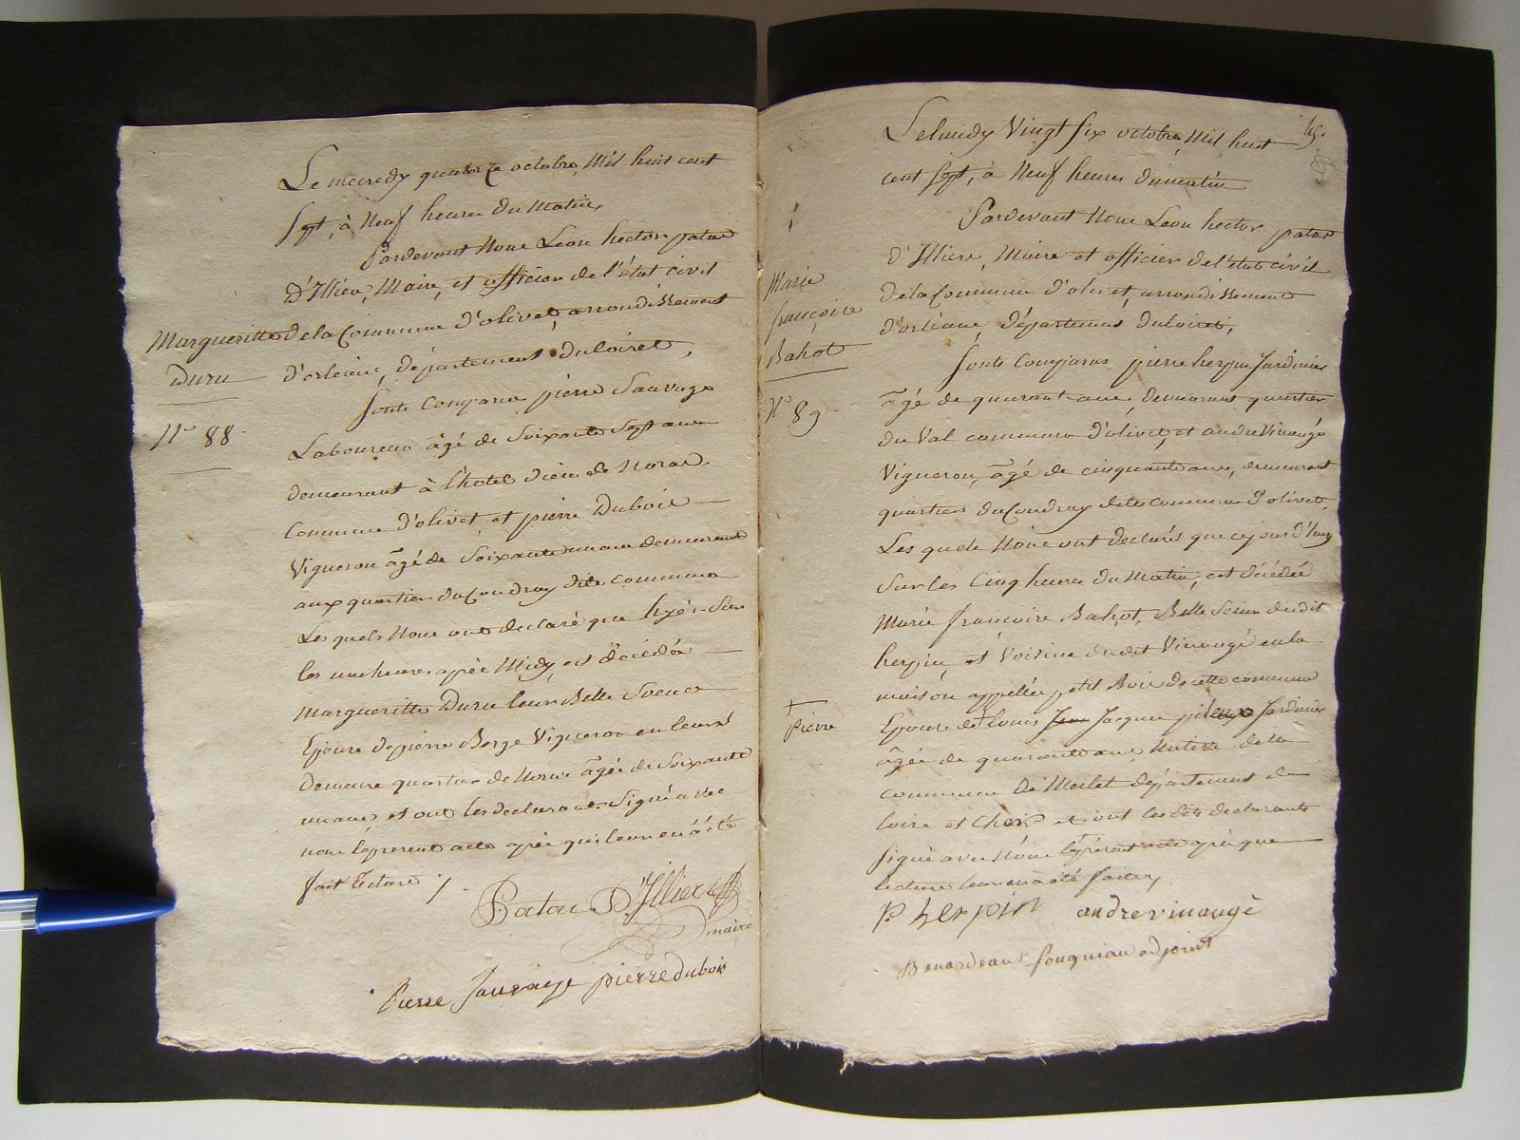 Le mercredy quatorze octobre Mil huit cent
sept, à Neuf heures du Matin,
Pardevant Nous Leon hector patas
D'Illiers, Maire, et officier de l'état civil
Margueritte
Duru
N.o 88.
de la Commune d'olivet, arrondissement
d'orleans, département du loiret,
sonts Comparus pierre Sauvage
Laboureur âgé de Soixante Sept ans
demeurant à l'hotel dieu de Noras
Commune d'olivet, et pierre Dubois
Vigneron âgé de Soixante un ans demeurant
aux quartier du Coudray dite commune
Les quels Nous ont declaré que hyer Sur
les une heures après Midy, est décédée
Margueritte Duru leur Belle Soeur
Epouse de pierre Berge Vigneron en leurs
Demeure quartier de Noras âgée de Soixante
un ans et ont les declarants Signé avec
nous le present acte après qu'il leur en a été
fait lecture /.
Patas D'Illiers
maire
Pierre Sauvage pierre dubois
45.
Le lundy Vingt six octobre Mil huit
cent sept, à Neuf heures du matin
Pardevant Nous Leon hector patas
d'Illiers, Maire et officier de l'etat civil
Marie
françoise
Bahot
N.o 89
de la Commune d'olivet, arrondissement
d'orleans, département du loiret,
sonts Comparus pierre herpin Jardinier
âgé de quarant ans, demeurant quartier
du Val commune d'olivet, et andre Vinaugé
Vigneron, âgé de cinquante ans, demeurant
quartier du Coudray dite commune d'olivet,
Les quels Nous ont declarés que cejourd'huy
Sur les Cinq heures du Matin, est décédée
Marie francoise Bahot, Belle Soeur dudit
herpin, et Voisine dudit Vinaugé en la
maison appellée petit Bois de cette commune
+
pierre
Epouse de + louis Jean Jacque Jardinier
âgée de quarante ans Native de la
commune de département de
loire et Cher et ont les dits declarants
signé avec Nous le présent acte après que
lecture leur en a été faite,
P herpin andre vinaugé
adjoint